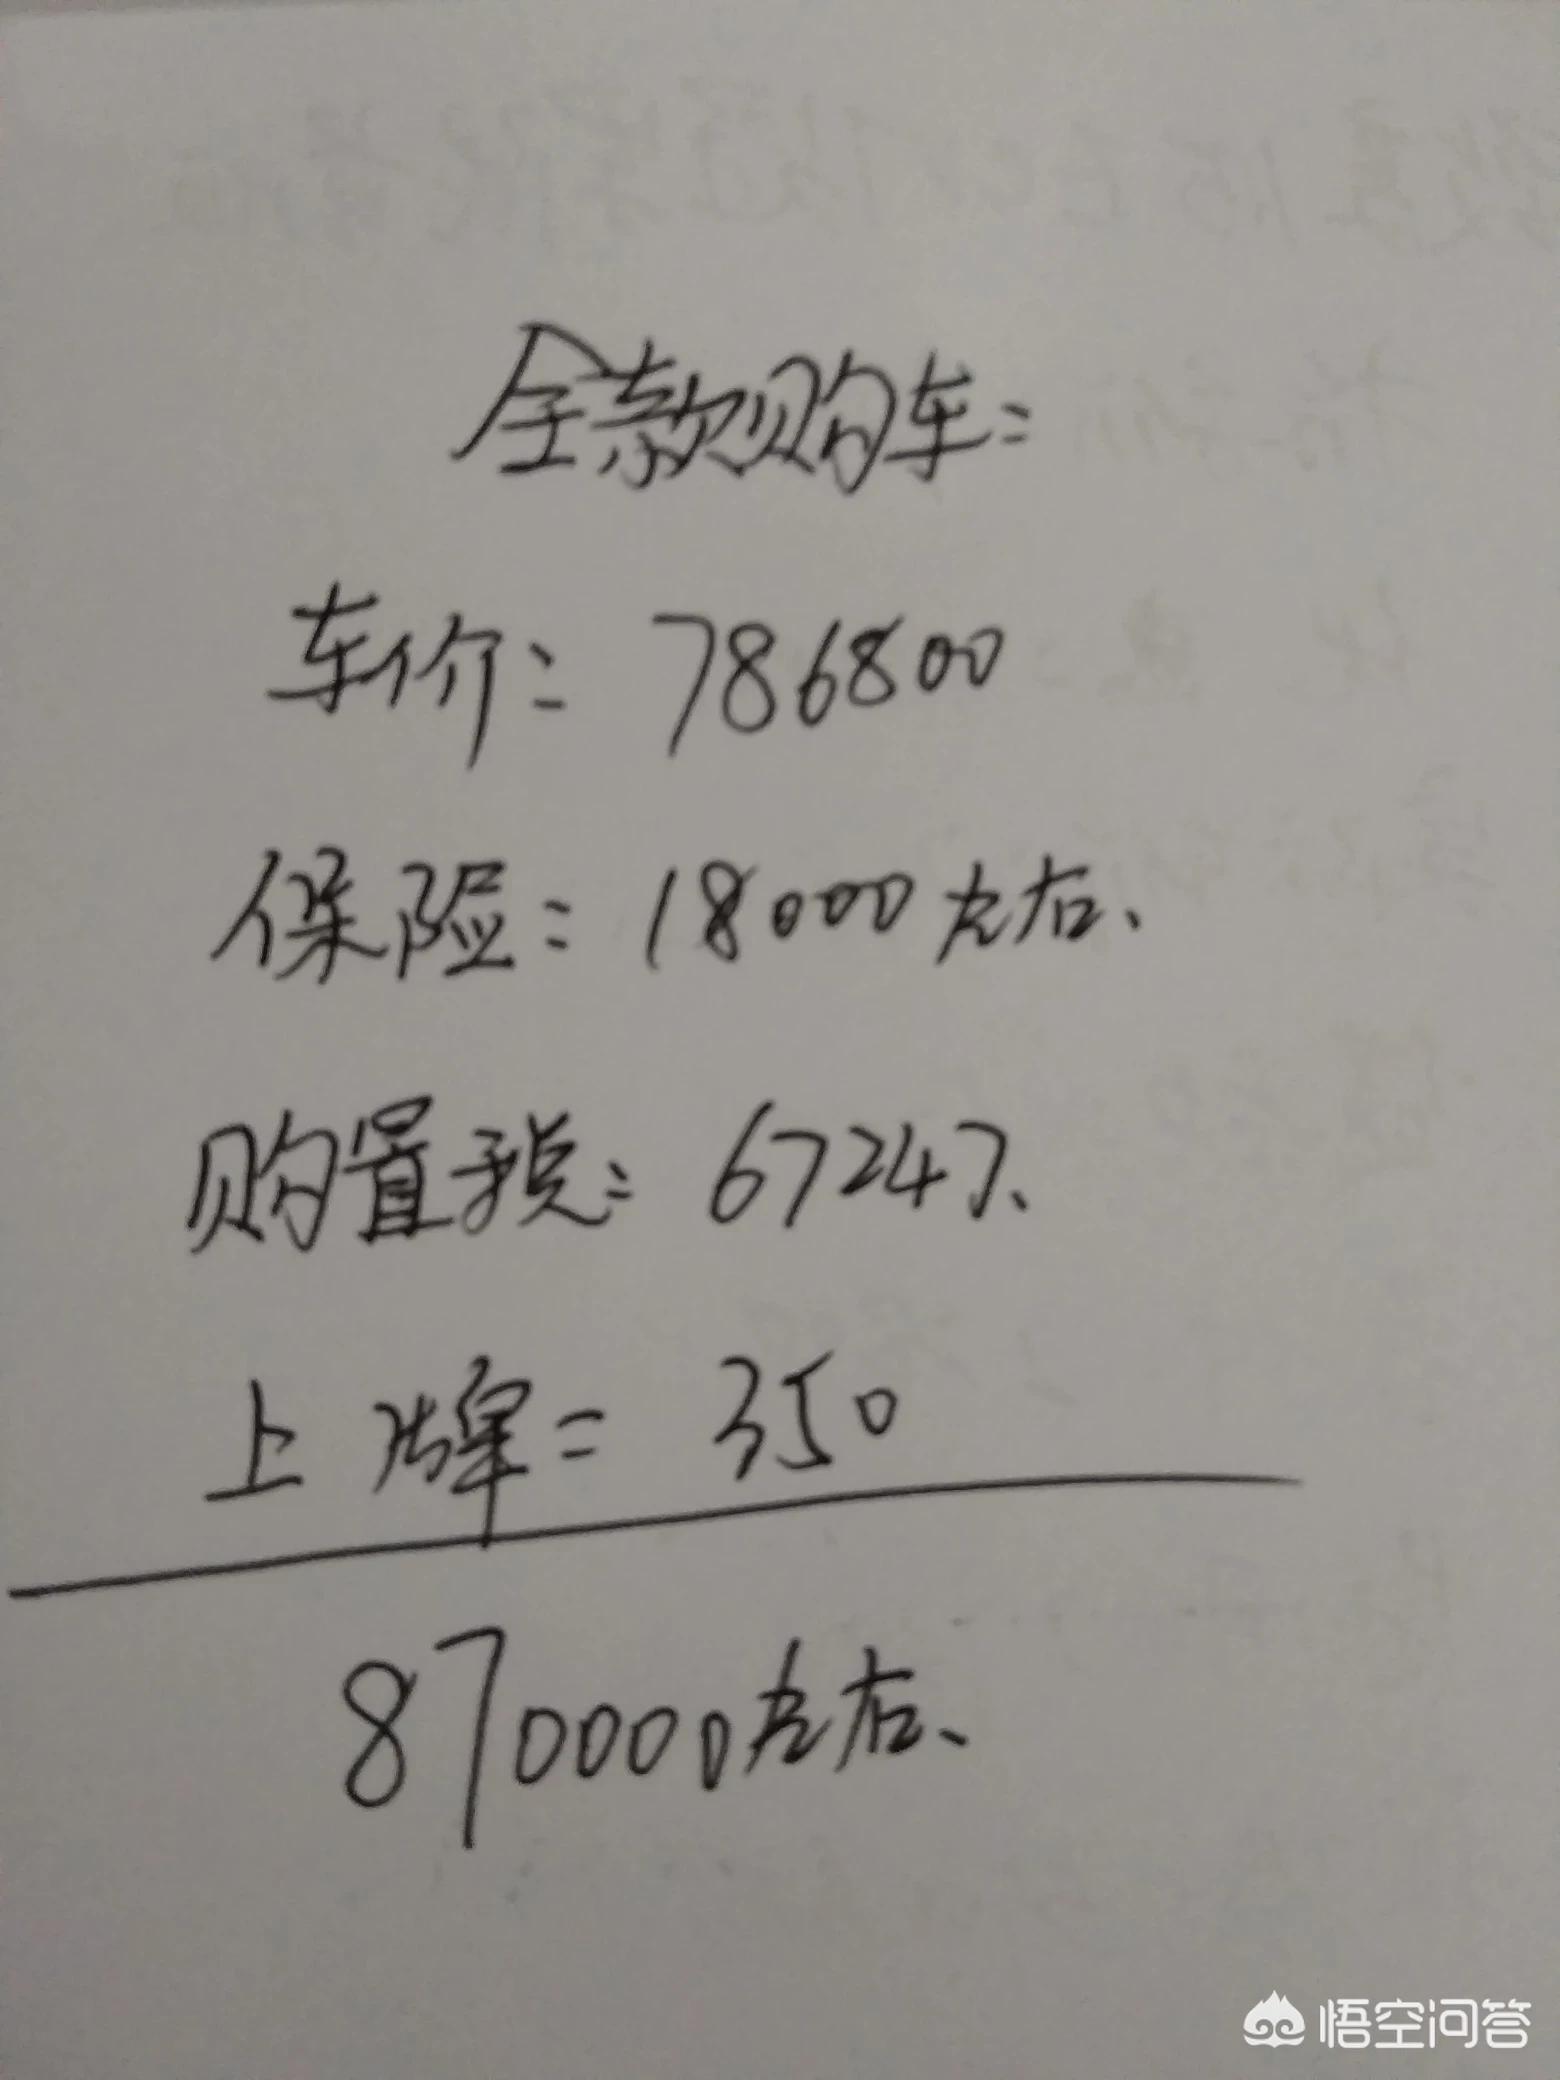 全款购车：
车价：786800
保险：18000左右、
购置税：67247、
上牌=350
870000左右、
悟空问答